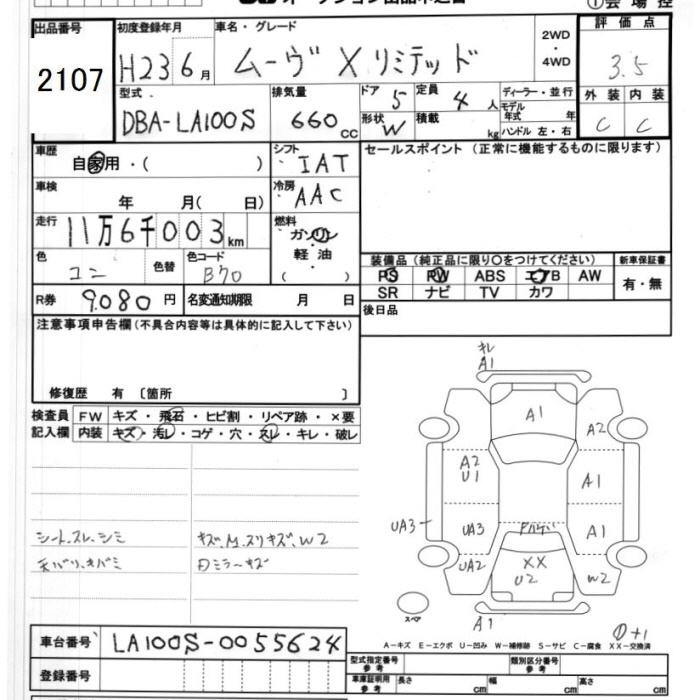 出品番号 初度登録年月 車名・グレード 2WD ・ 4WD 評価点
2107 H23 6月 ムーヴ X リミテッド 3.5
型式 排気量 ドア 5 定員 4 人 ディーラー・並行 外装 内装
DBA-LA100S 660 cc 形状 W 積載 kg モデル年式 年 C C
ハンドル 左・右
車歴 自家用・( ) シフト IAT セールスポイント(正常に機能するものに限ります)
車検 年 月( 日) 冷房 AAC
走行 11万6千003km 燃料 ガソリン
軽油
( )
色 コン 色替 色コード B70 装備品(純正品に限り○をつけてください) 新車保証書
PS PW ABS エアB AW 有・無
SR ナビ TV カワ
R券 9.080円 名変通知期限 月 日 後日品
注意事項申告欄(不具合内容等は具体的に記入して下さい)
修復歴 有 〔箇所 〕
検査員 FW キズ・飛石・ヒビ割・リペア跡・×要
記入欄 内装 キズ・汚レ・コゲ・穴・スレ・キレ・破レ
シート、スレ、シミ キズ、M、スリキズ、W2
天バリ、キバミ
キレ
A1
A1
A2
A2
U1
A1
UA3
UA3
A1
UA2
XX
U2
W2
スペア
A1
①+1
A−キズ E−エクボ U−凹み W−補修跡 S−サビ C−腐食 XX−交換済
車台番号 LA100S-0055624
登録番号
型式指定番号 参考 類別区分番号 参考
車庫証明用 参考 長さ cm 幅 cm 高さ cm